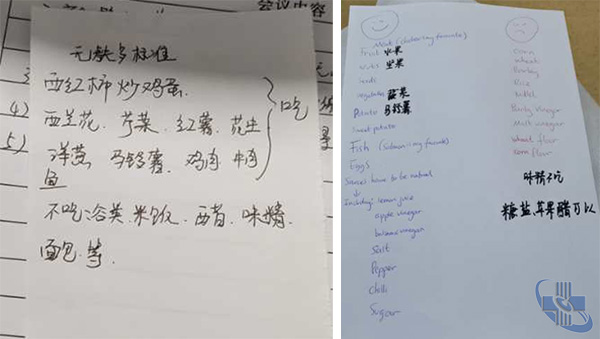 会议内容
无麸多标准
西红柿炒鸡蛋.
西兰花. 芹菜. 红薯. 花生
洋葱. 马铃薯. 鸡肉 牛肉
鱼
吃
4)
5)
不吃谷类 米饭. 西醋. 味精.
面包. 等.
Fruit 水果
nuts 坚果
seeds
vegetables 蔬菜
Potato 马铃薯
Sweet potato
Fish (Salmon is my favourite)
Eggs
Sauces have to be natural
Including: lemon juice
apple vinegar
balsamic vinegar
Salt
Pepper
Chilli
Sugar
corn
wheat
Barley
Rice
millet
Barley vinegar
Malt vinegar
wheat flour
corn flour
味精不吃
糖盐、苹果醋可以